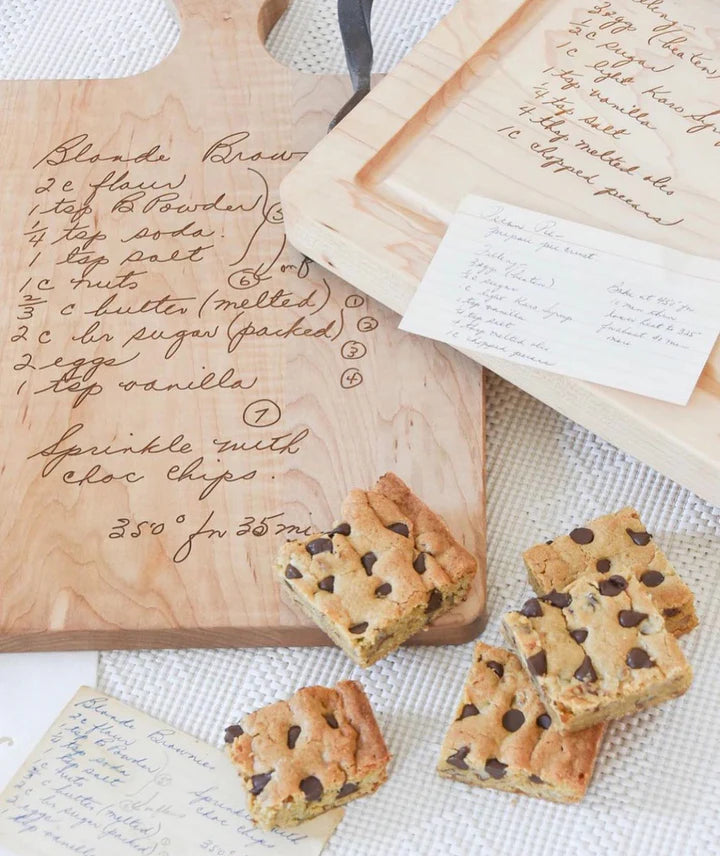 Blonde Brow
2 c flour
1 tsp B Powder
1/4 tsp soda
1 tsp salt
5
1 c nuts
6
2/3 c butter (melted)
1
2 c br sugar (packed)
2
2 eggs
3
1 tsp vanilla
4
7
Sprinkle with
choc chips.
350° for 35 mi
Filling -
3 eggs (beaten
2/3 c sugar
1 c light Karo Sy
1 tsp vanilla
1/4 tsp salt
4 tbsp melted oleo
1 c chopped pecans
Pecan Pie -
prepare pie crust
Filling -
3 eggs (beaten)
2/3 c sugar
1 c light Karo Syrup
1 tsp vanilla
1/4 tsp salt
4 tbsp melted oleo
1 c chopped pecans
Bake at 450° for
10 min then
lower heat to 325
more
Blonde Brownie
2 c flour
1 tsp B Powder
1/4 tsp soda
1 tsp salt
1 c nuts
2/3 c butter (melted)
2 c br sugar (packed)
1 tsp vanilla
Sprinkle
choc chips
350°